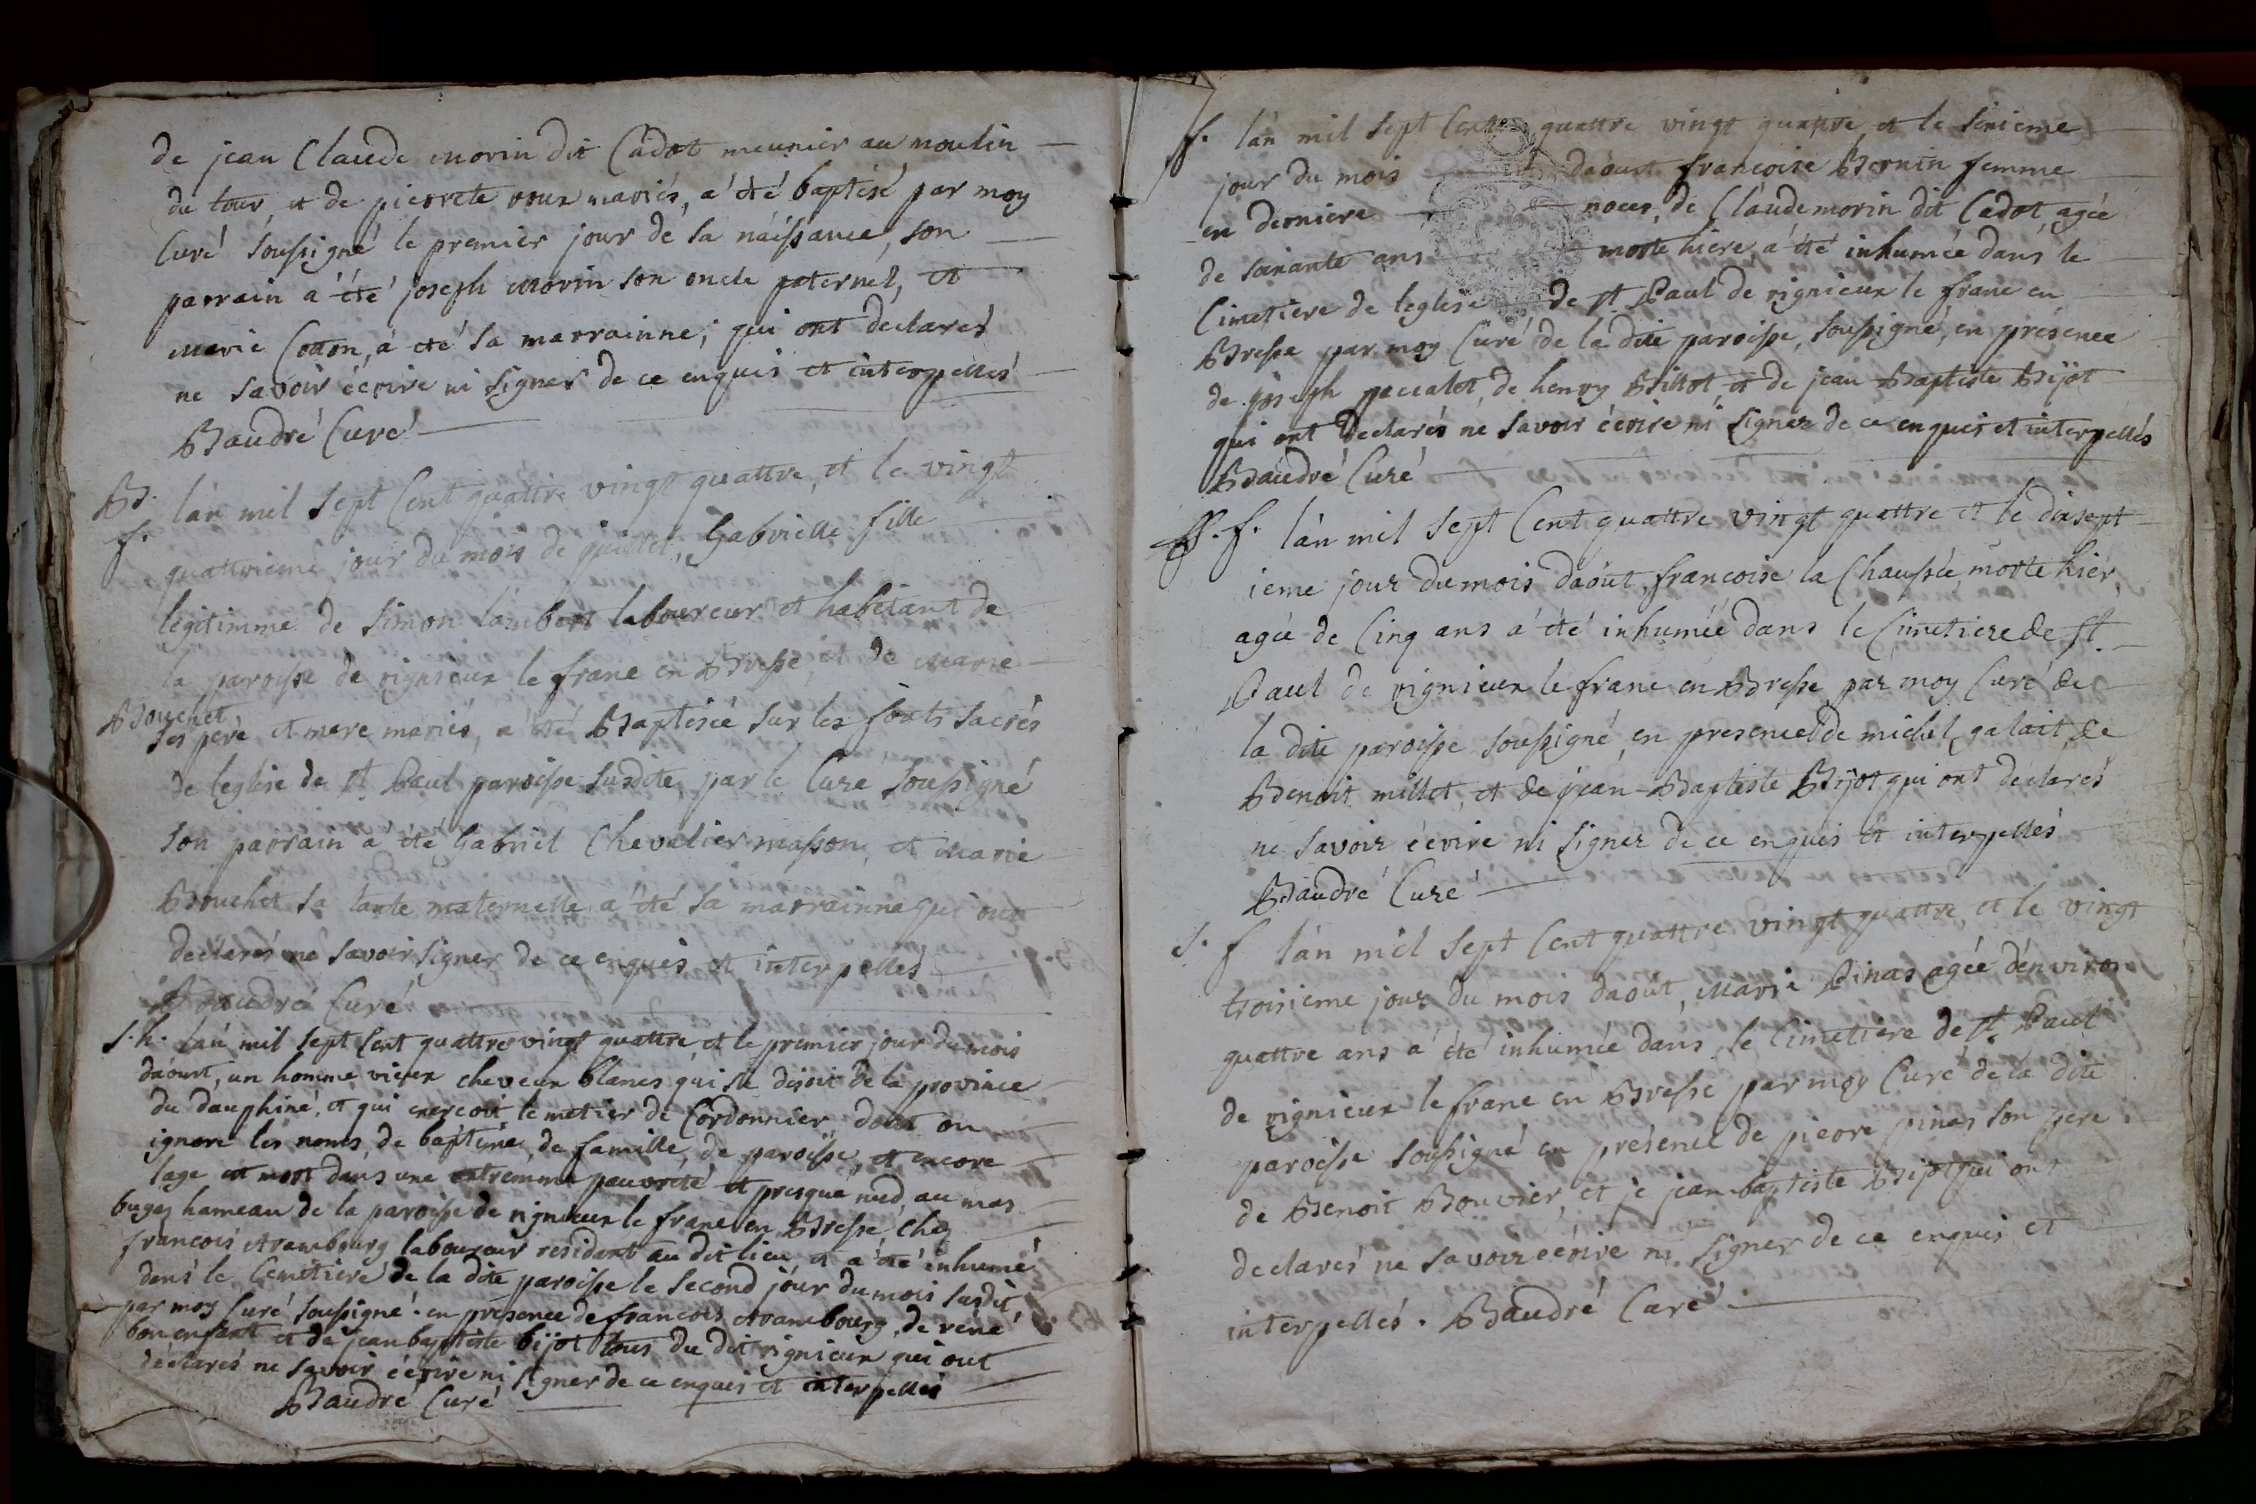 de jean Claude morin dit Cadot meunier au moulin
du tour, et de pierrete roux mariés, a été baptisé par moy
Curé soussigné le premier jour de sa náissance, son
parrain a été joseph morin son oncle paternel, et
marie Cotton, a été sa marrainne; qui ont declarés
ne savoir écrire ni signer de ce enquis et interpellés
Baudré Curé
B. f. lán mil sept Cent quattre vingt quattre, et le vingt
quattrieme jour du mois de juillet, Gabrielle fille
legitimme de Simon lambert laboureur et habitant de
la paroisse de rignieux le franc en Bresse, et de marie
Bouchet
ses pere et mere mariés, a été Baptisée sur les fonts sacrés
de leglise de st. Paul paroisse susdite, par le Curé soussigné
son parrain a été Gabriel Chevalier masson, et marie
Bouchet sa tante maternelle a été sa marrainne qui ont
declarés ne savoir signer de ce enquis et interpellés
Baudré Curé
S. h. lán mil sept Cent quattre vingt quattre, et le premier jour du mois
daoust, un homme vieux cheveux blancs qui se disoit de la province
du dauphiné, et qui exerçoit le metier de Cordonnier, dont on
ignore les noms de baptême, de famille, de paroisse, et encore
lage est mort dans une extremme pauvreté et presque nud, au mas
bugey hameau de la paroisse de rignieux le franc en Bresse, chez
francois Arambourg laboureur residant au dit lieu et a été inhumé
dans le Cemetiere de la dite paroisse le second jour du mois susdit,
par moy Curé soussigné: en presence de francois Arambourg, de rené
bon enfant et de jean baptiste bijot tous du dit rignieux qui ont
declarés ne savoir écrire ni signer de ce enquis et interpellés
Baudré Curé
f. lán mil sept Cent quattre vingt quattre et le sixieme
jour du mois daoust francoise Bernin femme
en derniere noces, de Claude morin dit Cadot, agée
de soixante ans morte hiere, a été inhumée dans le
Cimetiere de leglise de st. Paul de rignieux le franc en
Bresse par moy Curé de la dite paroisse, soussigné, en présence
de joseph paccalot, de henry Billot, et de jean Baptiste Bijot
qui ont declarés ne savoir écrire ni signer de ce enquis et interpellés
Baudré Curé
S. f. lán mil sept Cent quattre vingt quattre et le dixsept
ieme jour du mois daôut, francoise la Chaussée, morte hier,
agée de Cinq ans a été inhumée dans le Cimetiere de st.
Paul de rignieux le franc en Bresse par moy Curé de
la dite paroisse soussigné, en presence de michel galait, de
Benoit millet, et de jean-Baptiste Bijot qui ont declarés
ne savoir écrire ni signer de ce enquis et interpellés
Baudré Curé
S. f lán mil sept Cent quattre vingt quattre, et le vingt
troisieme jour du mois daoût, marie Pinas agée dénviron
quattre ans a été inhumée dans le Cimetiere de st. Paul
de rignieux le franc en Bresse par moy Curé de la dite
paroisse soussigné en présence de pierre pinas son pere
de Benoit Bouvier, et je jean baptiste Bijot qui ont
declarés ne savoir écrire ni signer de ce enquis et
interpellés. Baudré Curé